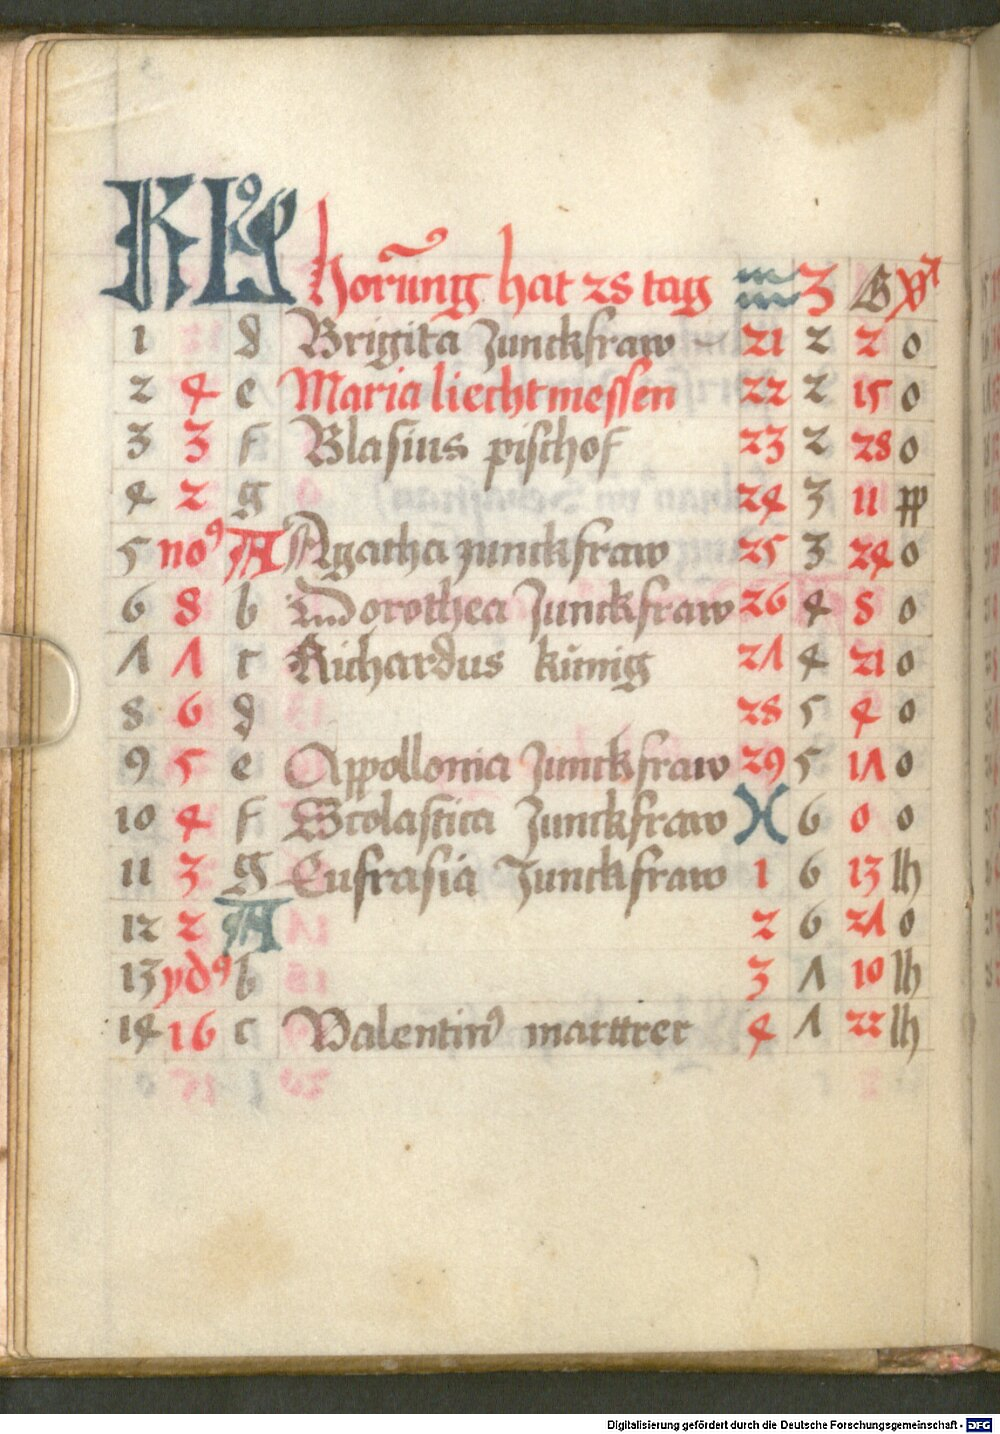 KL9 horũng hat 28 tag ♒ 3 G
1 d Brigita Junckfraw 21 2 2 0
2 4 e Maria liechtmessen 22 2 15 0
3 3 f Blasius pischof 23 2 28 0
4 2 g 24 3 11 pp
5 no9 A Agatha junckfraw 25 3 24 0
6 8 b Dorothea Junckfraw 26 4 8 0
7 7 c Richardus kũnig 27 4 21 0
8 6 d 28 5 4 0
9 5 e Appollonia Junckfraw 29 5 17 0
10 4 f Scolastica Junckfraw ♓ 6 0 0
11 3 g Eufrasia Junckfraw 1 6 13 lh
12 2 A 2 6 27 0
13 yd9 b 3 7 10 lh
14 16 c Valentin9 marttrer 4 7 22 lh
Digitalisierung gefördert durch die Deutsche Forschungsgemeinschaft - DFG